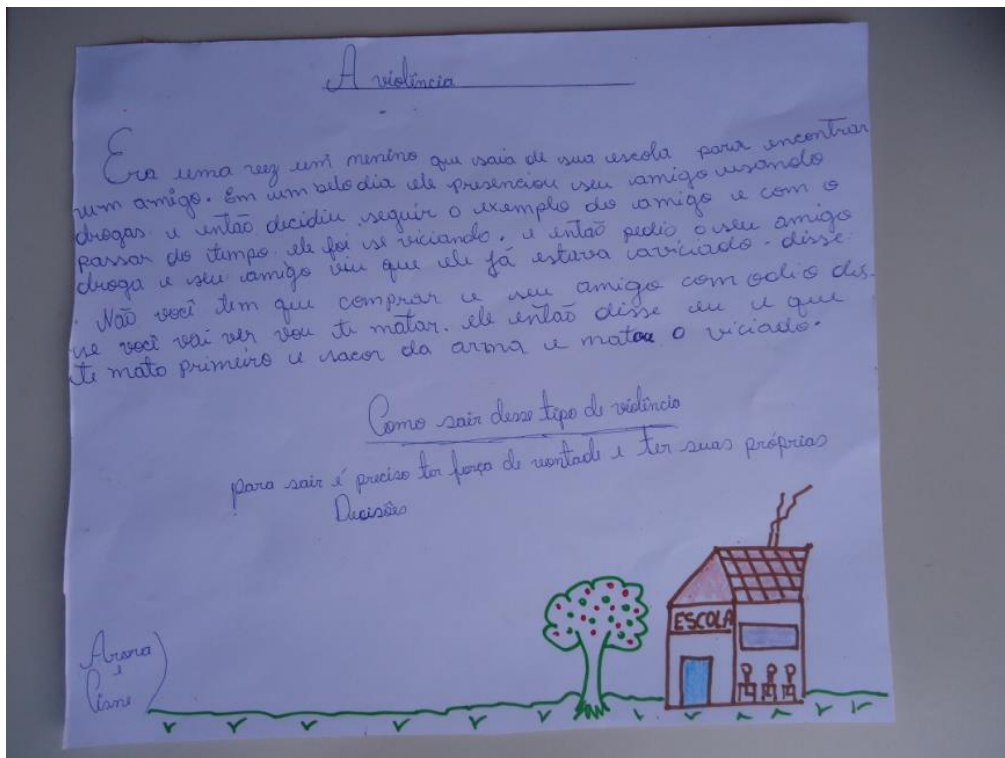 A violência
Era uma vez um menino que saia de sua escola para encontrar
num amigo. Em um belo dia ele presenciou seu amigo usando
drogas e então decidiu seguir o exemplo do amigo e com o
passar do tempo. ele foi se viciando. e então pedio o seu amigo
droga e seu amigo viu que ele já estava aviciado. disse.
Não você tem que comprar e seu amigo com odio dis-
se você vai ver vou ti matar. ele então disse eu e que
te mato primeiro e sacor da arma e matou o viciado.
Como sair desse tipo de violência
para sair é preciso ter força de vontade e ter suas próprias
Decisões
ESCOLA
e
Cisne